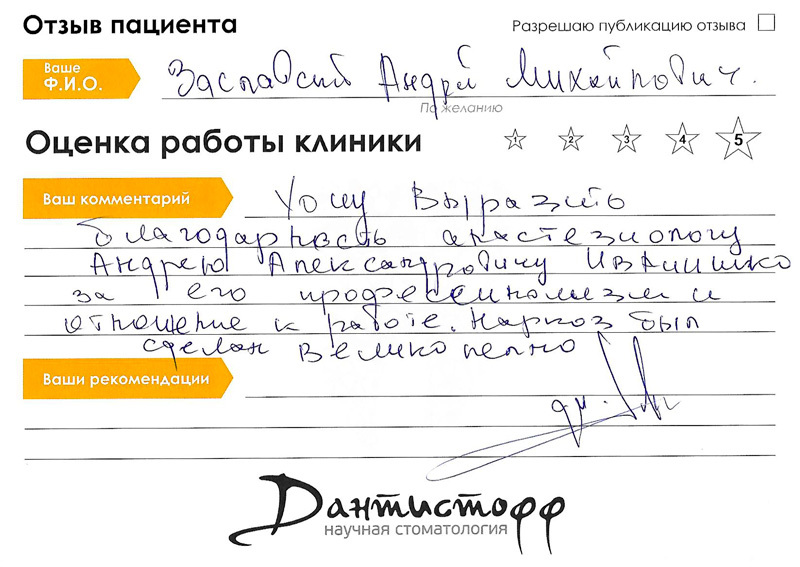 Отзыв пациента
Разрешаю публикацию отзыва
Ваше
Ф.И.О.
Заславский Андрей Михайлович.
По желанию
Оценка работы клиники
1 2 3 4 5
Ваш комментарий
Хочу выразить
благодарность анастезиологу
Андрею Александровичу Иванишко
за его профессионализм и
отношение к работе. Наркоз был
сделан великолепно
Ваши рекомендации
Дантистофф
научная стоматология